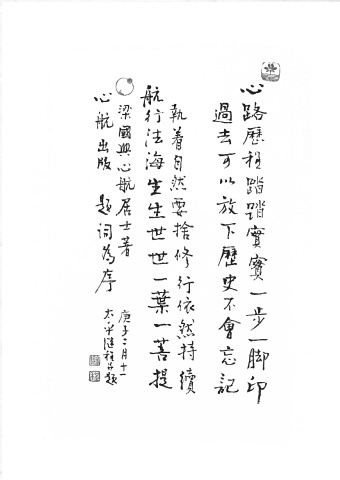 心路歷程踏踏實實一步一腳印
過去可以放下歷史不會忘記
執着自然要捨修行依然持續
航行法海生生世世一葉一菩提
梁國興心航居士著
心航出版 題詞為序
庚子二月十一
太平
題